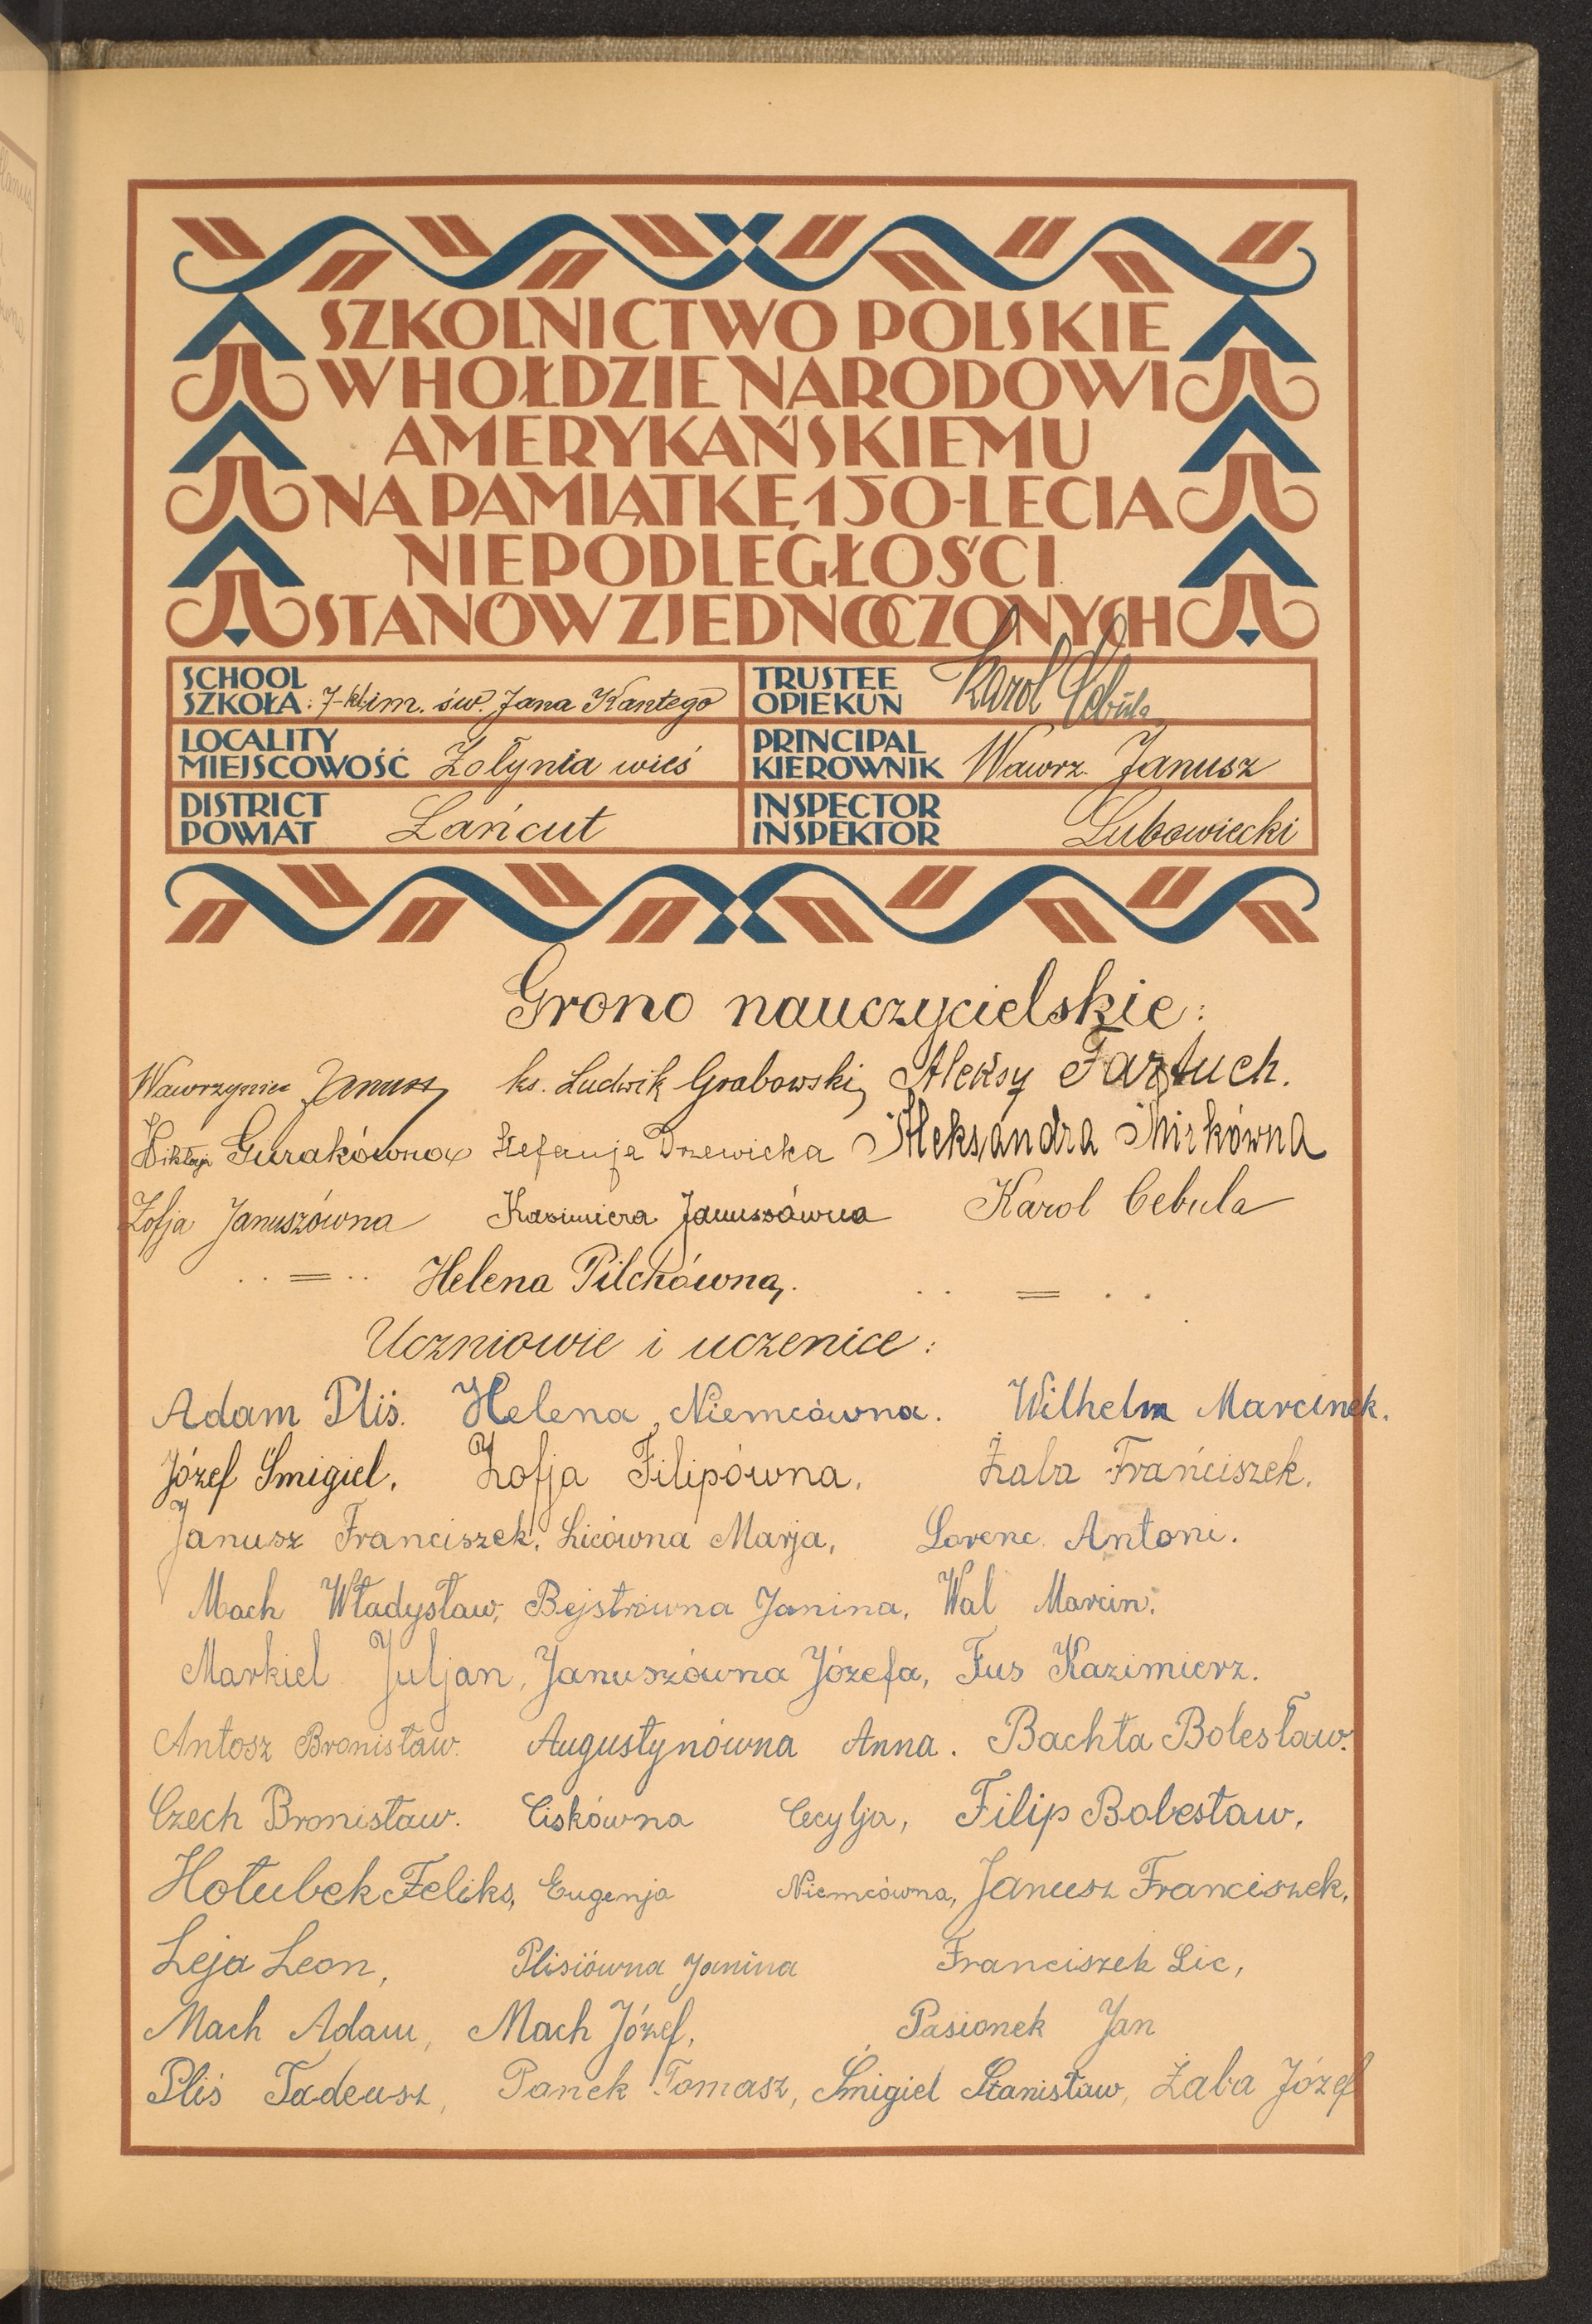 SZKOLNICTWO POLSKIE
W HOŁDZIE NARODOWI
AMERYKAŃSKIEMU
NA PAMIĄTKĘ 150-LECIA
NIEPODLEGŁOŚCI
STANÓW ZJEDNOCZONYCH
SCHOOL
SZKOŁA: 7-kl. im. św. Jana Kantego
TRUSTEE
OPIEKUN Karol Cebula
LOCALITY
MIEJSCOWOŚĆ Żołynia wieś
PRINCIPAL
KIEROWNIK Wawrz. Janusz
DISTRICT
POWIAT Łańcut
INSPECTOR
INSPEKTOR Lubowiecki
Grono nauczycielskie:
Wawrzyniec Janusz, ks. Ludwik Grabowski, Aleksy Fartuch.
Wiktorja Gurakówna Stefanja Drzewicka Aleksandra Mirkówna
Zofja Januszówna Kazimiera Januszówna Karol Cebula
Helena Pilchówna.
Uczniowie i uczenice:
Adam Pliś. Helena Niemcówna. Wilhelm Marcinek.
Józef Śmigiel. Zofja Filipówna. Żaba Franciszek.
Janusz Franciszek. Licówna Marja, Lorenc Antoni.
Mach Władysław, Bejstrówna Janina, Wal Marcin.
Markiel Juljan, Januszówna Józefa, Fus Kazimierz.
Antosz Bronisław. Augustynówna Anna. Bachta Bolesław.
Czech Bronisław. Ciskówna Cecylja, Filip Bolesław,
Hołubek Feliks, Eugenja Niemcówna, Janusz Franciszek,
Leja Leon, Plisiówna Janina Franciszek Lic,
Mach Adam, Mach Józef, Pasionek Jan
Pliś Tadeusz, Panek Tomasz, Śmigiel Stanisław, Żaba Józef